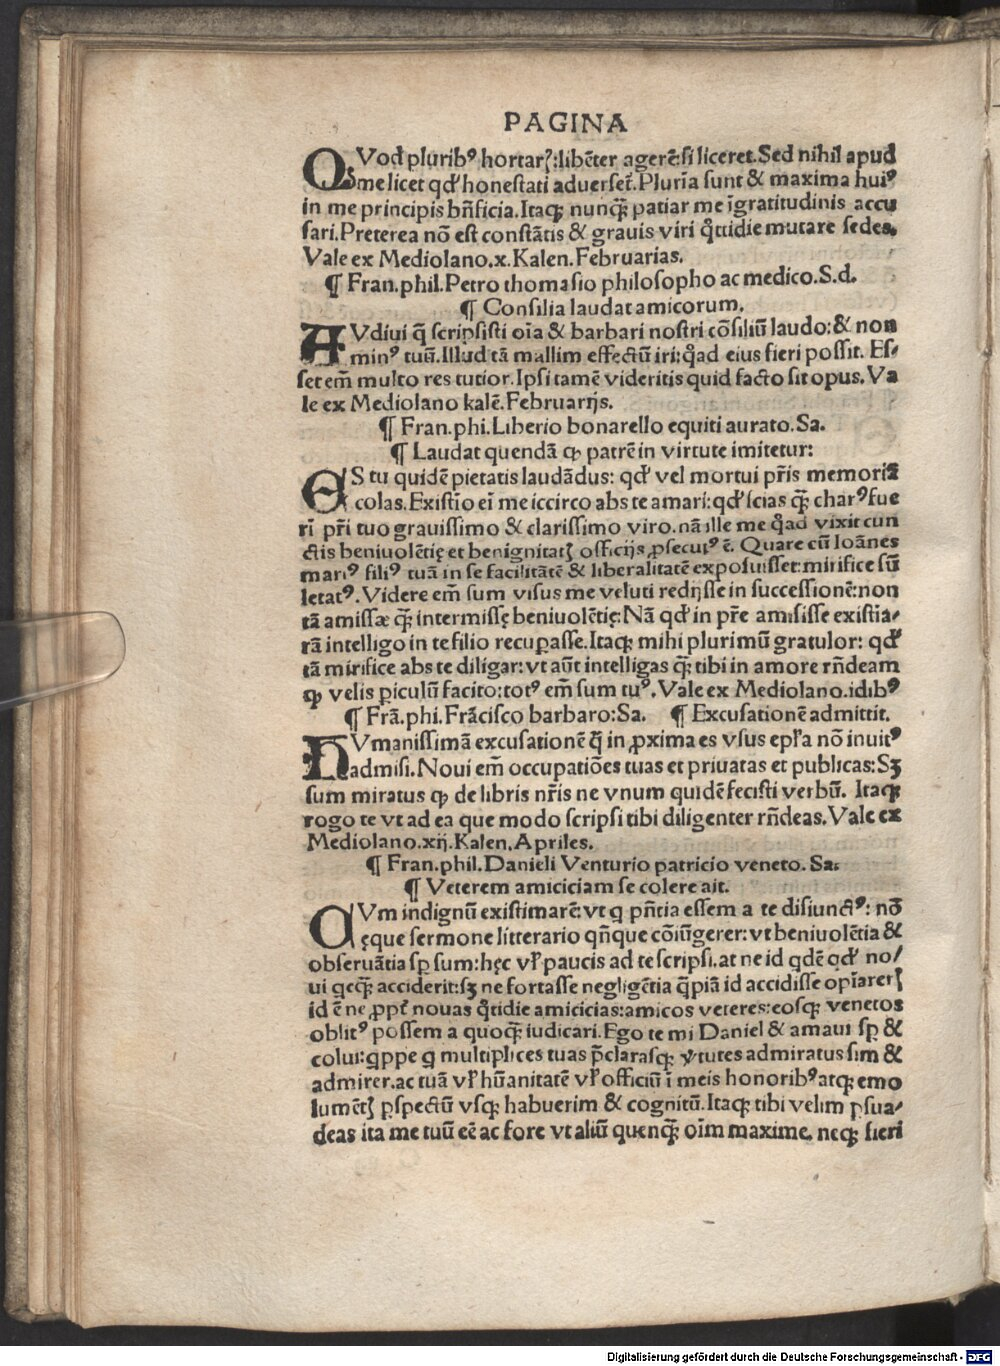 PAGINA
QVod pluribꝰ hortarꝭ: libēter agerē: si liceret. Sed nihil apud
me licet qđ honestati aduerset̄. Pluria sunt & maxima huiꝰ
in me principis bn̄ficia. Itaqꝫ nunq̄ꝫ patiar me īgratitudinis accu
sari. Preterea nō est constātis & grauis viri q̊ttidie mutare sedes.
Vale ex Mediolano. x. Kalen. Februarias.
¶ Fran. phil. Petro thomasio philosopho ac medico. S. d.
¶ Consilia laudat amicorum.
AVdiui q̄ scripsisti oīa & barbari nostri cōsiliū laudo: & non
minꝰ tuū. Illud tā mallim effectū iri: q̊ad eius fieri possit. Es⸗
set em̄ multo res tutior. Ipsi tamē videritis quid facto sit opus. Va
le ex Mediolano kalē. Februarijs.
¶ Fran. phi. Liberio bonarello equiti aurato. Sa.
¶ Laudat quendā ꝙ patrē in virtute imitetur:
ES tu quidē pietatis laudādus: qđ vel mortui pr̄is memoriā
colas. Existīo eī me iccirco abs te amari: qđ scias q̄ꝫ charꝰ fue
rī pr̄i tuo grauissimo & clarissimo viro. nā ille me q̊ad vixit cun
ctis beniuolētię et benignitatꝭ officijs ꝓsecutꝰ ē. Quare cū Ioānes
mariꝰ filiꝰ tuā in se facilitātē & liberalitatē exposuisset: mirifice sū
letatꝰ. Videre em̄ sum visus me veluti redijsse in successionē: non
tā amissæ q̄ꝫ intermissę beniuolētię: Nā qđ in pr̄e amisisse existia⸗
rā intelligo in te filio recuꝑasse. Itaqꝫ mihi plurimū gratulor: qđ
tā mirifice abs te diligar: vt aūt intelligas q̄ꝫ tibi in amore rn̄deam
ꝙ velis ꝑiculū facito: totꝰ em̄ sum tuꝰ. Vale ex Mediolano. idibꝰ
¶ Frā. phi. Frācisco barbaro: Sa. ¶ Excusationē admittit.
HVmanissimā excusationē q̄ in ꝓxima es vsus epl̄a nō inuitꝰ
admisi. Noui em̄ occupatiōes tuas et priuatas et publicas: Sꝫ
sum miratus ꝙ de libris nr̄is ne vnum quidē fecisti verbū. Itaqꝫ
rogo te vt ad ea que modo scripsi tibi diligenter rn̄deas. Vale ex
Mediolano. xij. Kalen. Apriles.
¶ Fran. phil. Danieli Venturio patricio veneto. Sa.
¶ Veterem amiciciam se colere ait.
CVm indignū existimarē: vt q pn̄tia essem a te disiunctꝰ: nō
ęque sermone litterario qn̄que cōiūgerer: vt beniuolētia &
obseruātia sp̄ sum: hęc vl̄ paucis ad te scripsi. at ne id qdē qđ no⸗
ui qcq̄ꝫ acciderit: sꝫ ne fortasse negligētia q̄piā id accidisse opīarerꝭ
id ē ne ꝓpt̄ nouas q̊tidie amicicias: amicos veteres: eosqꝫ venetos
oblitꝰ possem a quoq̄ꝫ iudicari. Ego te mi Daniel & amaui sp̄ &
colui: qppe q multiplices tuas p̄clarasqꝫ v̓tutes admiratus sim &
admirer. ac tuā vl̄ hūanitatē vl̄ officiū ī meis honoribꝰ atqꝫ emo
lumētꝭ ꝑspectū vsqꝫ habuerim & cognitū. Itaqꝫ tibi velim ꝑsua⸗
deas ita me tuū eē ac fore vt aliū quenq̄ꝫ oīm maxime. neqꝫ fieri
Digitalisierung gefördert durch die Deutsche Forschungsgemeinschaft - DFG